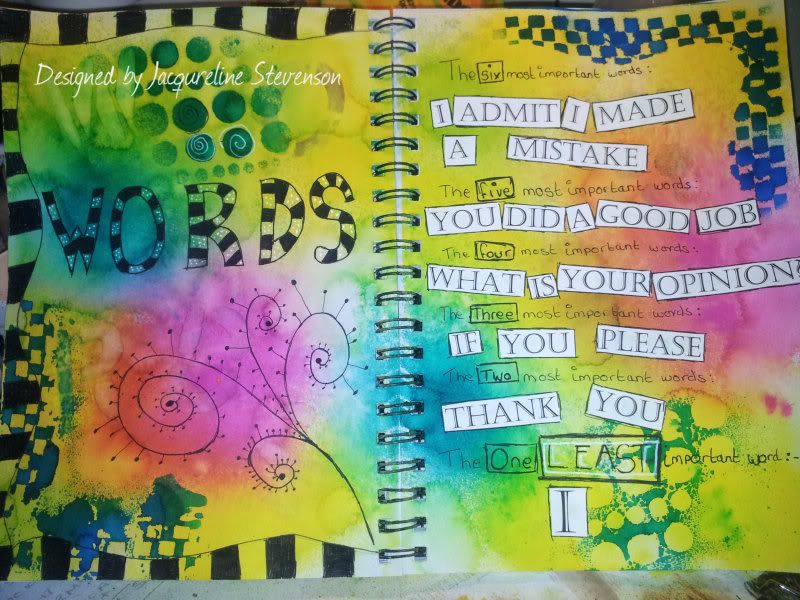 Designed by Jacqureline Stevenson
WORDS
The six most important words:
I ADMIT I MADE
A MISTAKE
The five most important words:
YOU DID A GOOD JOB
The four most important words:
WHAT IS YOUR OPINION?
The Three most important words:
IF YOU PLEASE
The Two most important words:
THANK YOU
The One LEAST important word:-
I